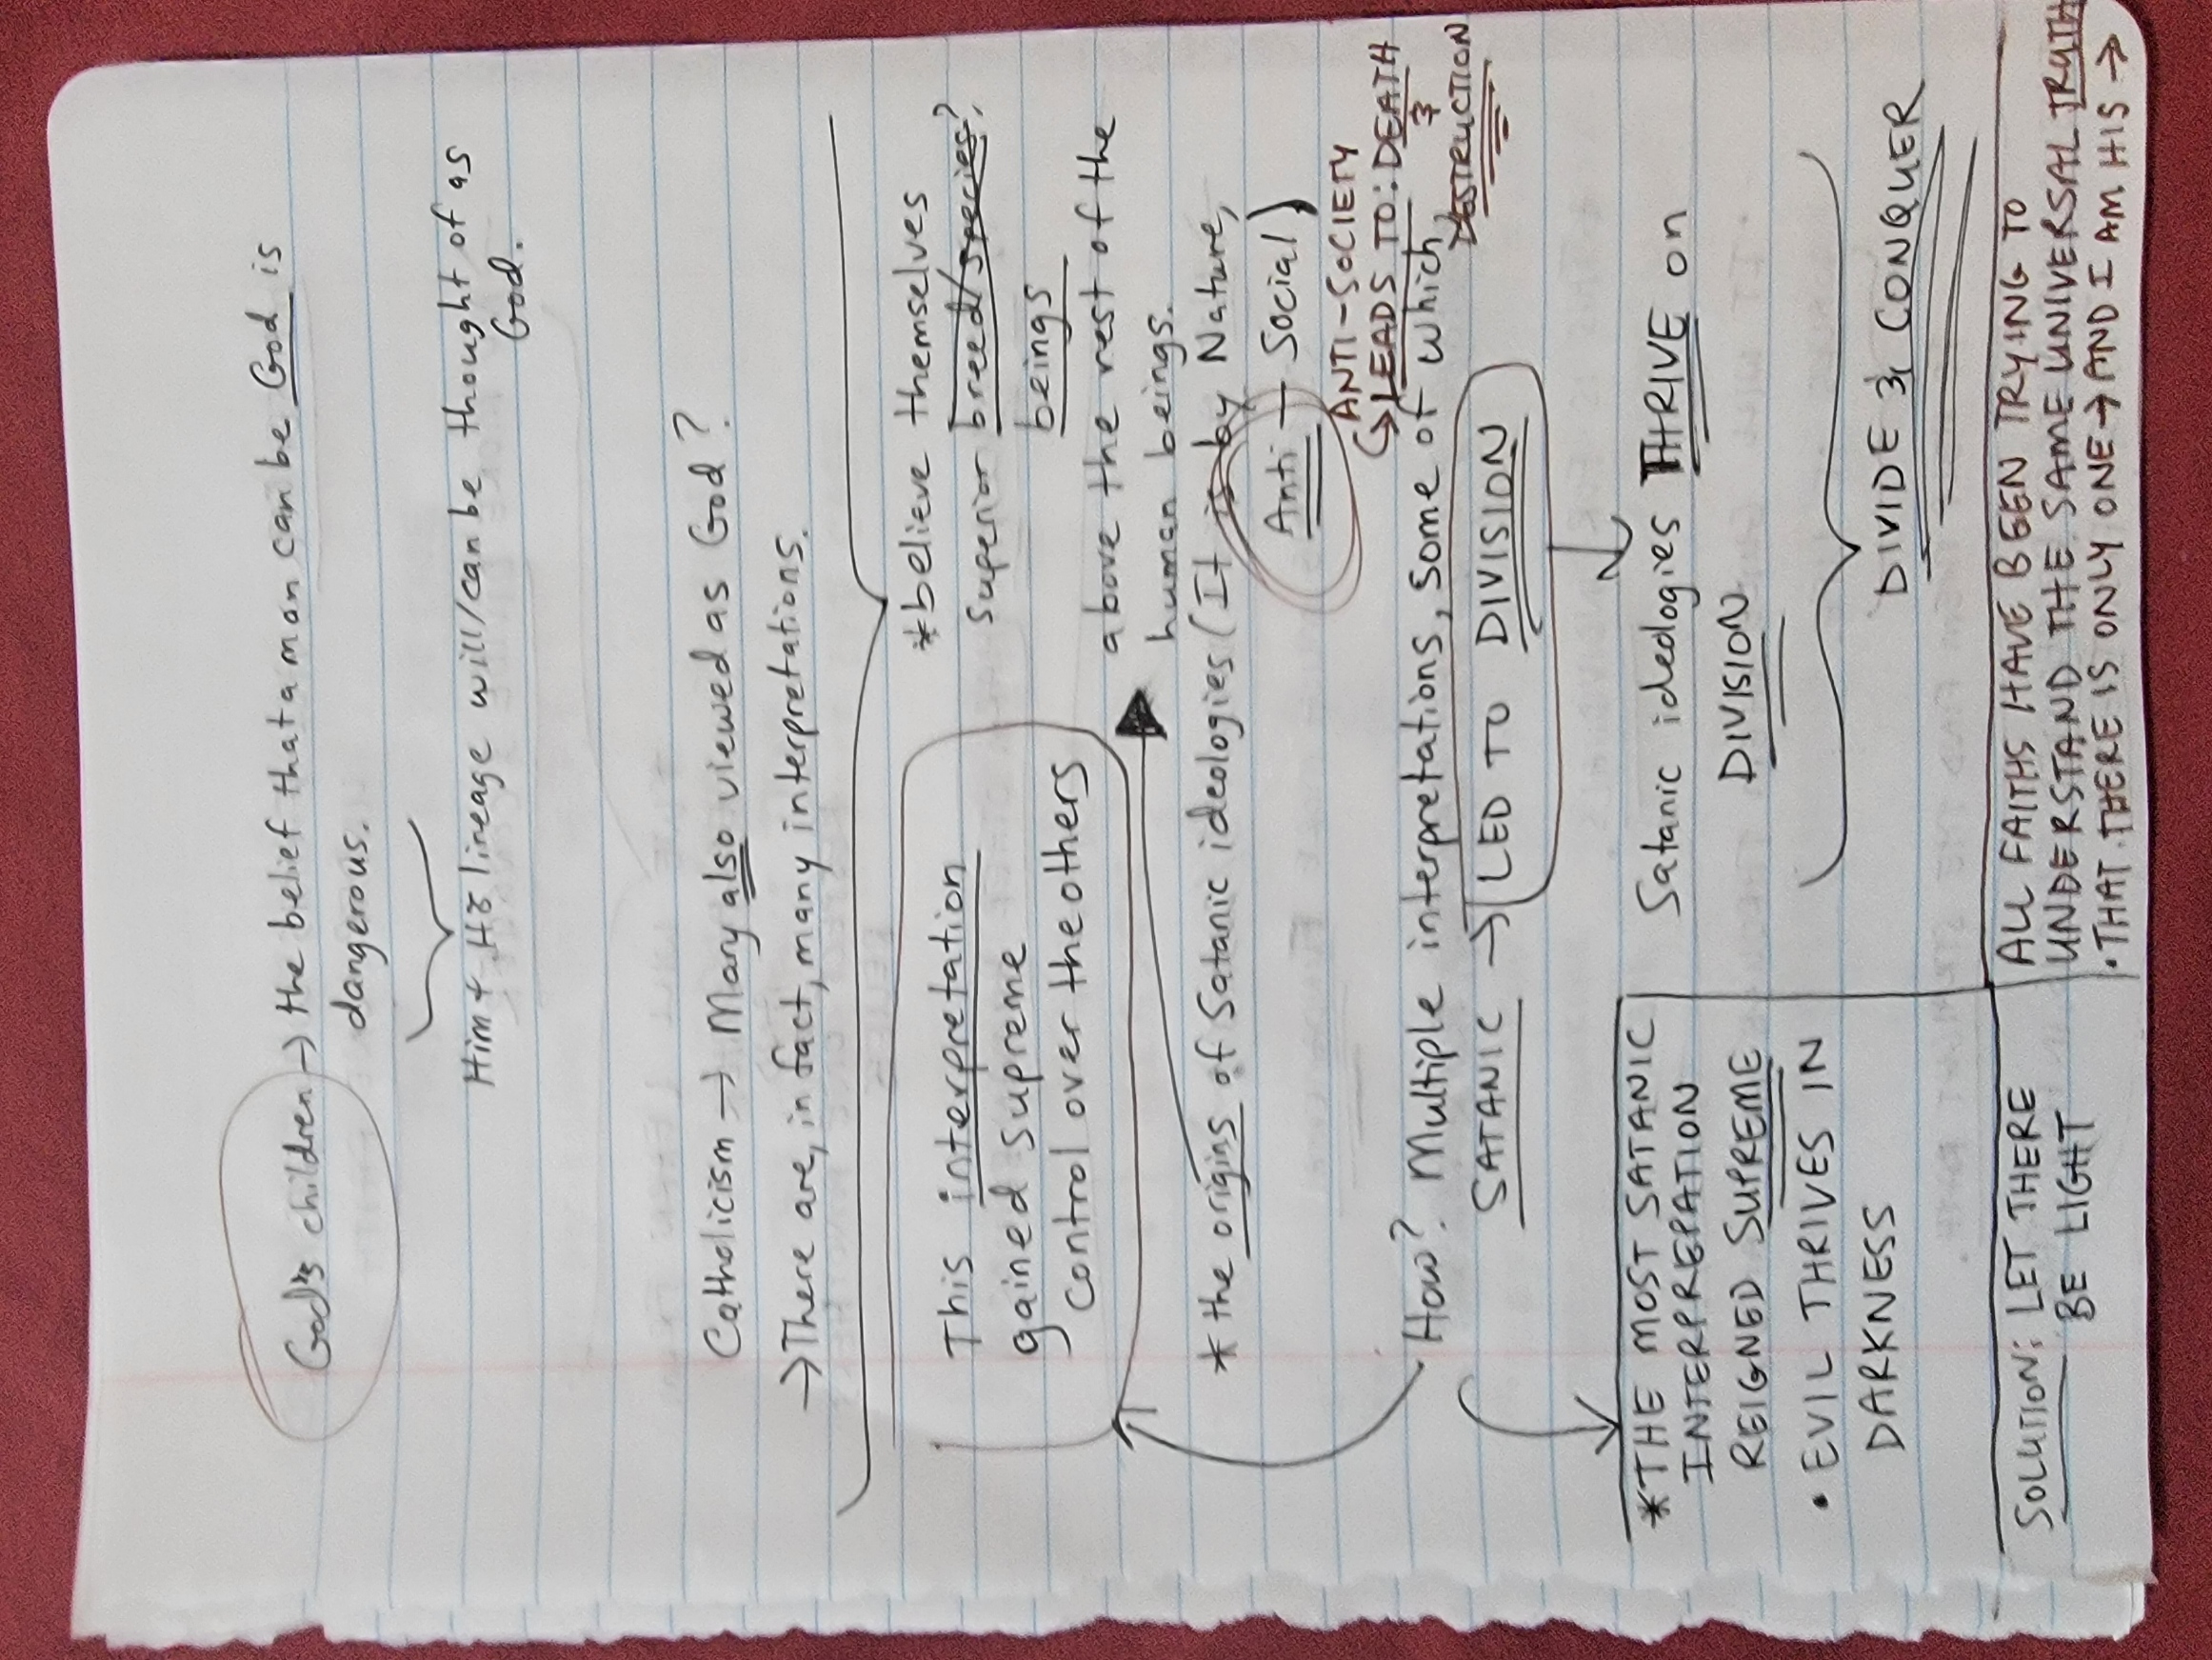 God's children → the belief that a man can be God is
dangerous.
Him + His lineage will/can be thought of as
God.
Catholicism → Mary also viewed as God?
→ There are, in fact, many interpretations.
This interpretation
gained supreme
control over the others
*believe themselves
superior breed/species?
beings
above the rest of the
human beings.
* the origins of Satanic ideologies (It is by Nature,
Anti - Social)
ANTI-SOCIETY
↳ LEADS TO: DEATH
&
DESTRUCTION
How? Multiple interpretations, some of which,
SATANIC → LED TO DIVISION
*THE MOST SATANIC
INTERPREPATION
REIGNED SUPREME
• EVIL THRIVES IN
DARKNESS
Satanic ideologies THRIVE on
DIVISION
DIVIDE & CONQUER
SOLUTION: LET THERE
BE LIGHT
ALL FAITHS HAVE BEEN TRYING TO
UNDERSTAND THE SAME UNIVERSAL TRUTH
• THAT THERE IS ONLY ONE → AND I AM HIS →